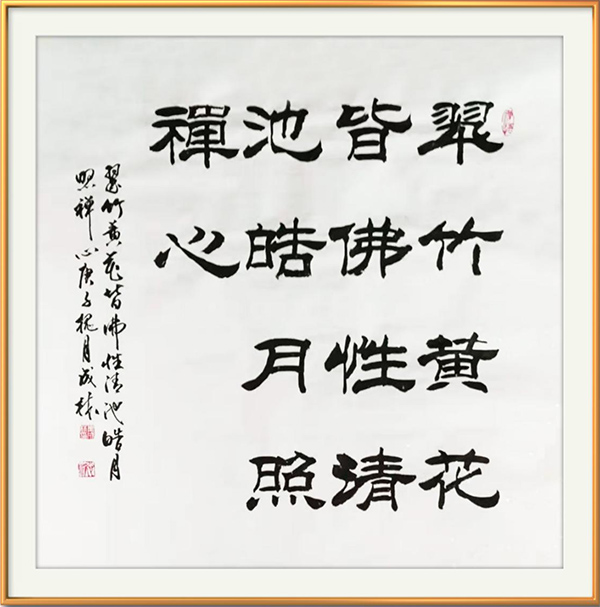 翠竹黄花
皆佛性清
池皓月照
禪心
翠竹黄花皆佛性清池皓月
照禅心庚子桃月成林